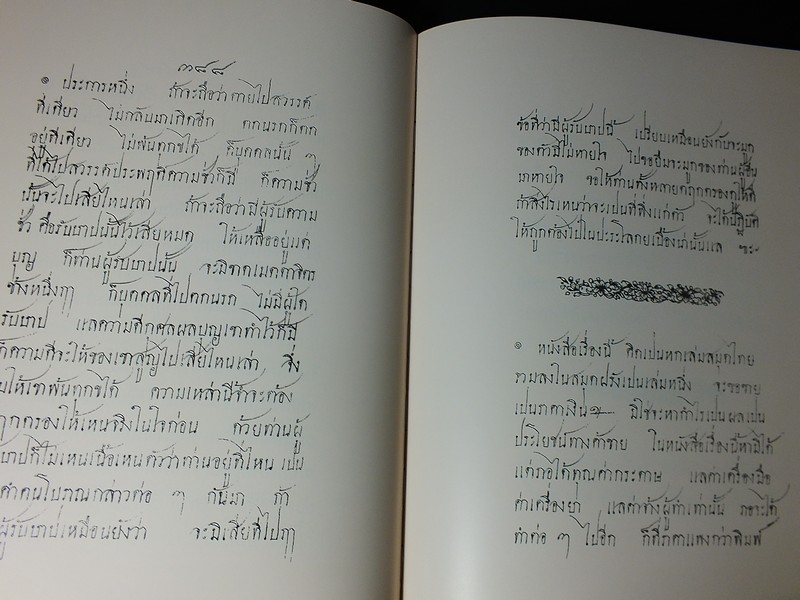 ๓๘๘
๏ ประการหนึ่ง ถ้าจะถือว่าตายไปสวรรค์
ทีเดียว ไม่กลับมาเกิดอีก ตกนรกก็ตก
อยู่ทีเดียว ไม่พ้นทุกขได้ ก็บุคคลนั้น ๆ
ที่ได้ไปสวรรค์ประพฤติความชั่วก็มี ก็ความชั่ว
นั้นจะไปเสียไหนเล่า ถ้าจะถือว่ามีผู้รับความ
ชั่ว คือรับบาปนั้นไว้เสียหมด ให้เหลืออยู่แต่
บุญ ก็ท่านผู้รับบาปนั้น จะมีขาดเมตตาจิตร
ข้างหนึ่งฤๅ ก็บุคคลที่ไปตกนรก ไม่มีผู้ใด
รับบาป แลความที่กุศลผลบุญเขาทำไว้ก็มี
ก็ความดีจะให้ของเขาสูญไปเสียไหนเล่า จึ่ง
ให้เขาพ้นทุกขได้ ความเหล่านี้ข้าจะต้อง
ตฤกตรองให้เหนจริงในใจก่อน ด้วยท่านผู้
บาปก็ไม่เหนเนื้อเหนตัวว่าท่านอยู่ที่ไหน เป็น
คำคนโบราณกล่าวต่อ ๆ กันมา ถ้า
ผู้รับบาปเหมือนยังว่า จะมิเสียทีไปฤๅ
ข้อที่ว่ามีผู้รับบาปนี้ เปรียบเหมือนยังกับจะมูก
ของตัวมีไม่หายใจ ไปขอยืมจะมูกของท่านผู้อื่น
มาหายใจ ขอให้ท่านทั้งหลายตฤกตรองดูให้ดี
ถ้าสิ่งไรเหนว่าจะเป็นที่พึ่งแก่ตัว จะได้ปฏิบัติ
ให้ถูกต้องไปในประโลกยเบื้องน่านั้นแล ฯะ
๏ หนังสือเรื่องนี้ คิดเป็นหกเล่มสมุดไทย
รวมลงในสมุดฝรั่งเป็นเล่มหนึ่ง จะขอขาย
เป็นราคาเงิน มิใช่จะหากำไรเป็นผลเป็น
ประโยชน์ทางค้าขาย ในหนังสือเรื่องนี้หามิได้
แต่ภอได้คุณค่ากระดาษ แลค่าเครื่องมือ
ค่าเครื่องยา แลค่าจ้างผู้ทำเท่านั้น ภอจะได้
ทำต่อ ๆ ไปอีก ก็ที่ราคาแพงกว่าพิมพ์